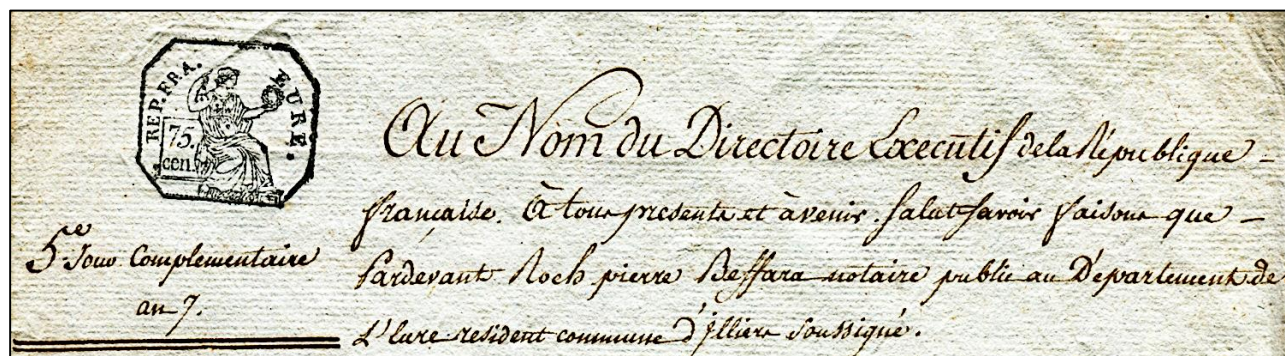 REP. FRA. EURE.
75.
cen.
5e Jour Complementaire
an 7.
Au Nom du Directoire Executif de la République
française. A tous presents et àvenir. Salut Savoir faisons que
Pardevant Roch pierre Beffara notaire public au Département de
L'Eure resident commune d'Illiers Soussigné.